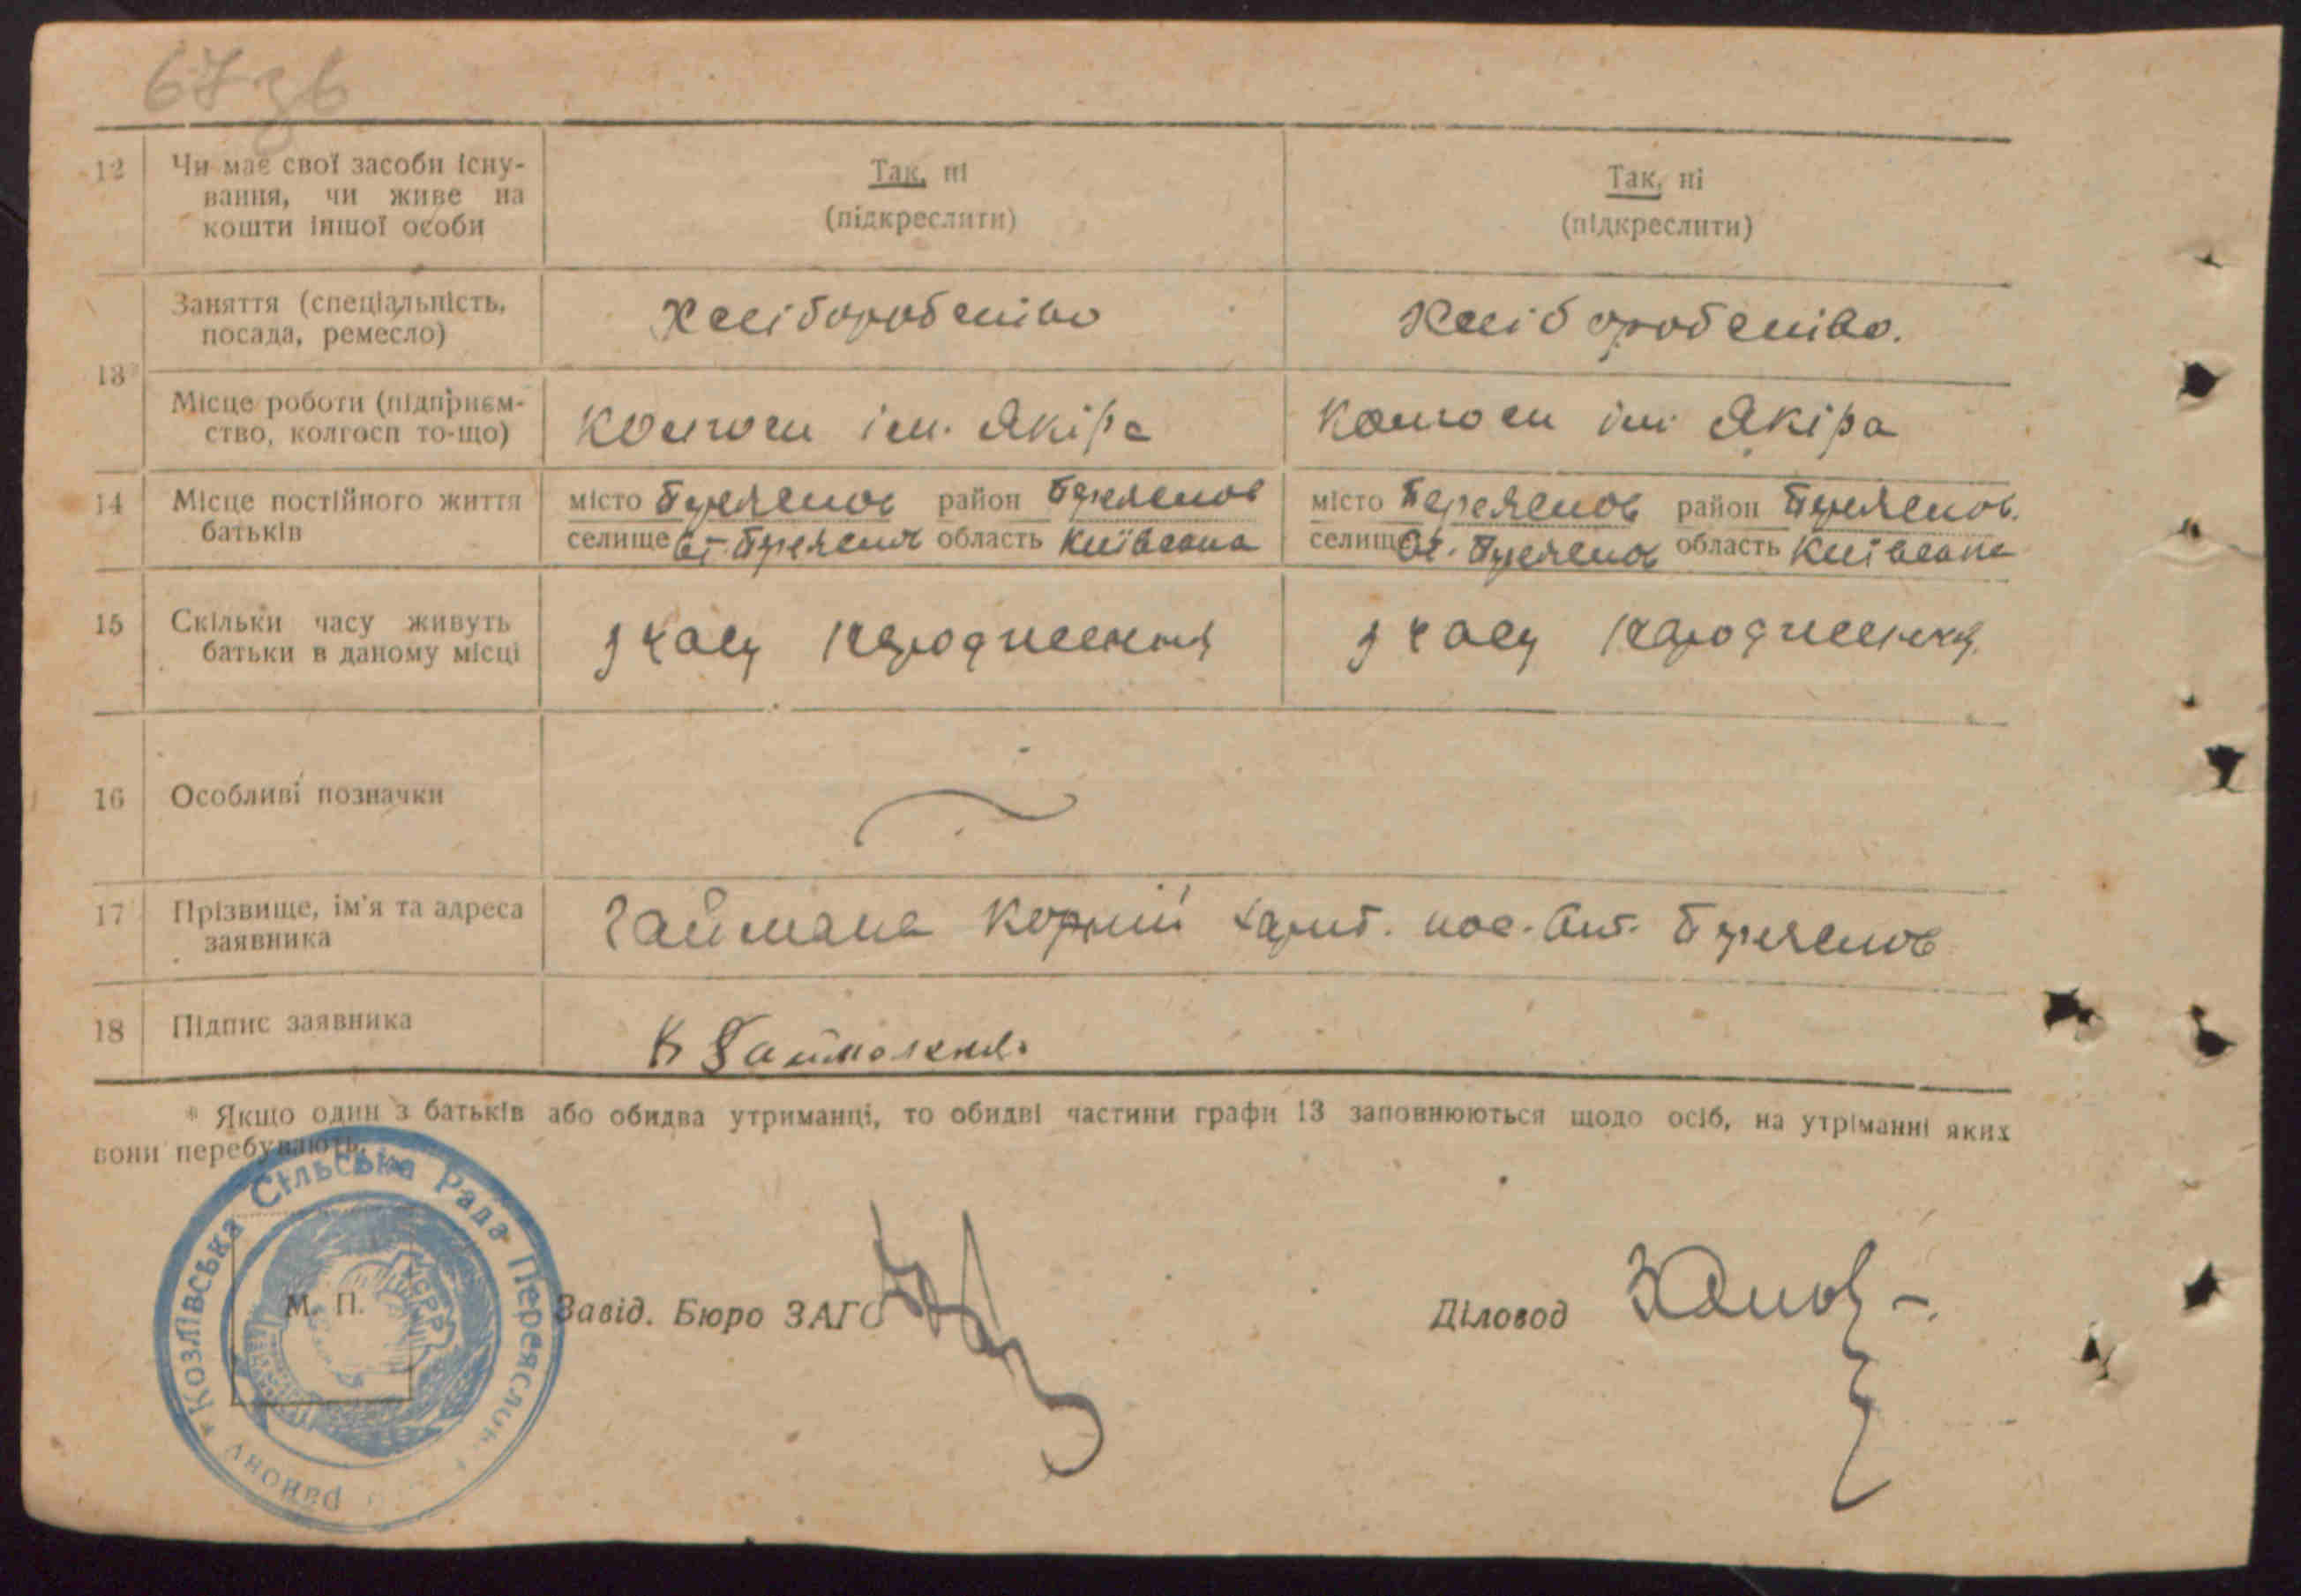 67зв
12 Чи має свої засоби існу- Так, ні Так, ні
вання, чи живе на
кошти іншої особи (підкреслити) (підкреслити)
Заняття (спеціальність, Хліборобство Хліборобство.
посада, ремесло)
13*
Місце роботи (підприєм- Колгосп ім. Якіра Колгосп ім Якіра
ство, колгосп то-що)
14 Місце постійного життя місто Переяслов район Переяслов місто Переяслов район Переяслов.
батьків селище область Київська селище область Київська
15 Скільки часу живуть з часу народження з часу народження
батьки в даному місці
16 Особливі позначки
17 Прізвище, ім'я та адреса Корній Переяслов
заявника
18 Підпис заявника К
* Якщо один з батьків або обидва утриманці, то обидві частини графи 13 заповнюються щодо осіб, на утріманні яких
вони перебувають.
Козлівська Сільська Рада Переяслов. району
УСРР
М. П.
Завід. Бюро ЗАГС
Діловод